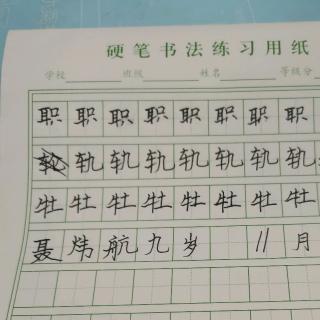 硬笔书法练习用纸
学校 班级 姓名 等级分
职 职 职 职 职 职 职 职
轨 轨 轨 轨 轨 轨 轨 轨
牡 牡 牡 牡 牡 牡 牡 牡
聂 炜 航 九 岁 11 月